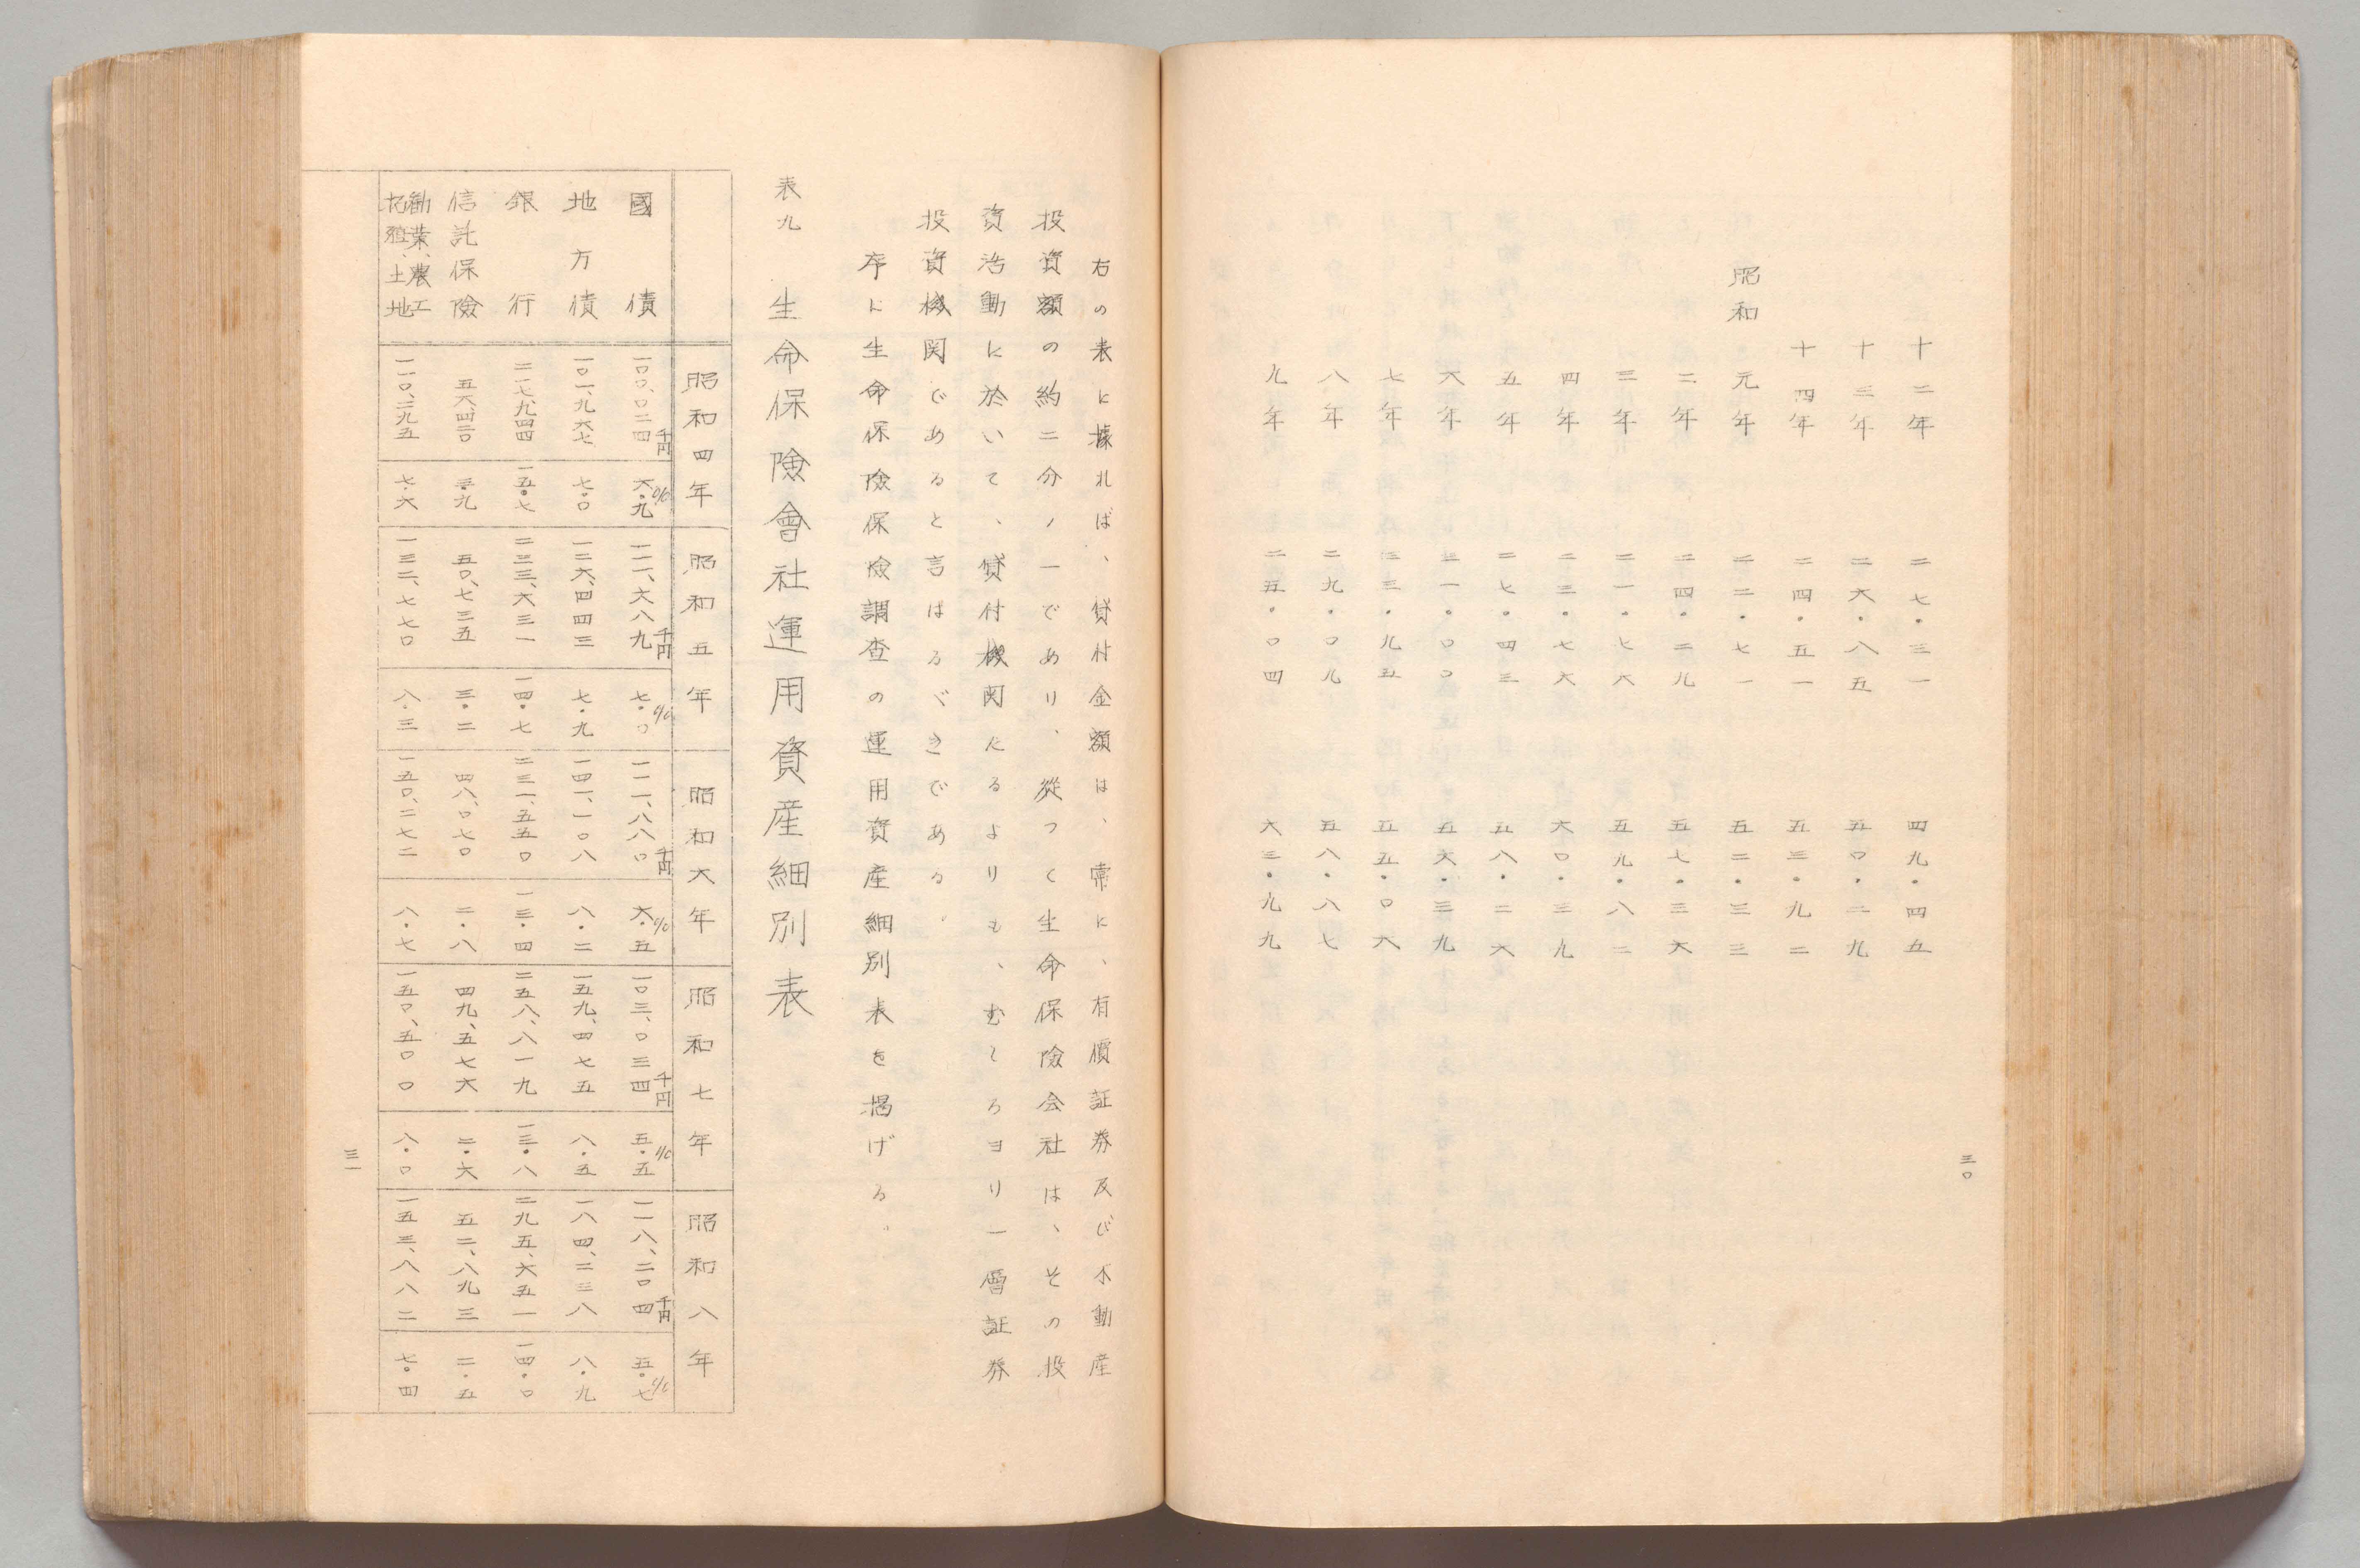 十二年 二七・三一 四九・四五
十三年 二六・八五 五〇・二九
十四年 二四・五一 五三・九二
昭和元年 二二・七一 五二・三三
二年 二四・二九 五七・三六
三年 二一・七六 五九・八二
四年 二三・七六 六〇・三九
五年 二七・四三 五八・二六
六年 三一・〇〇 五六・三九
七年 三三・九五 五五・〇六
八年 二九・〇九 五八・八七
九年 二五・〇四 六三・九九
三〇
右の表に據れば、貸付金額は、常に、有價証券及び不動産
投資額の約二分ノ一であり、從つて生命保險会社は、その投
資活動に於いて、貸付機関たるよりも、むしろヨリ一層証券
投資機関であると言はるべきである。
序に生命保險保險調査の運用資産細別表を掲げる。
表九 生命保險會社運用資産細別表
昭和四年 昭和五年 昭和六年 昭和七年 昭和八年
國債 一〇〇、〇二四千円 六・九% 一一一、六八九千円 七・〇% 一一一、八八〇千円 六・五% 一〇三、〇三四千円 五・五% 一一八、二〇四千円 五・七%
地方債 一〇一、九六七 七・〇 一二六、四四三 七・九 一四一、一〇八 八・二 一五九、四七五 八・五 一八四、二三八 八・九
銀行 二一七、九四四 一五・七 二三三、六三一 一四・七 二三一、五五〇 一三・四 二五八、八一九 一三・八 二九五、六五一 一四・〇
信託保險 五六、四三〇 三・九 五〇、七三五 三・二 四八、〇七〇 二・八 四九、五七六 二・六 五二、八九三 二・五
勧業、農工
拓殖、土地 一一〇、二九五 七・六 一三二、七七〇 八・三 一五〇、二七二 八・七 一五〇、五〇〇 八・〇 一五三、八八二 七・四
三一